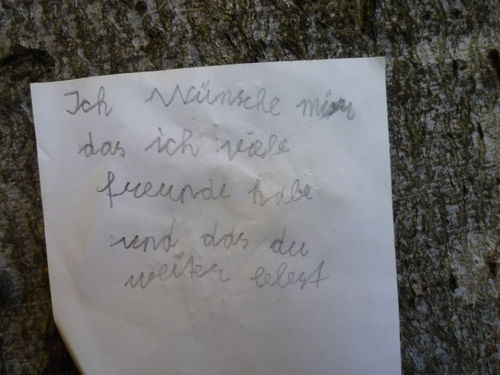 Ich Wünsche mir
das ich viele
freunde habe
und das du
weiter lebest